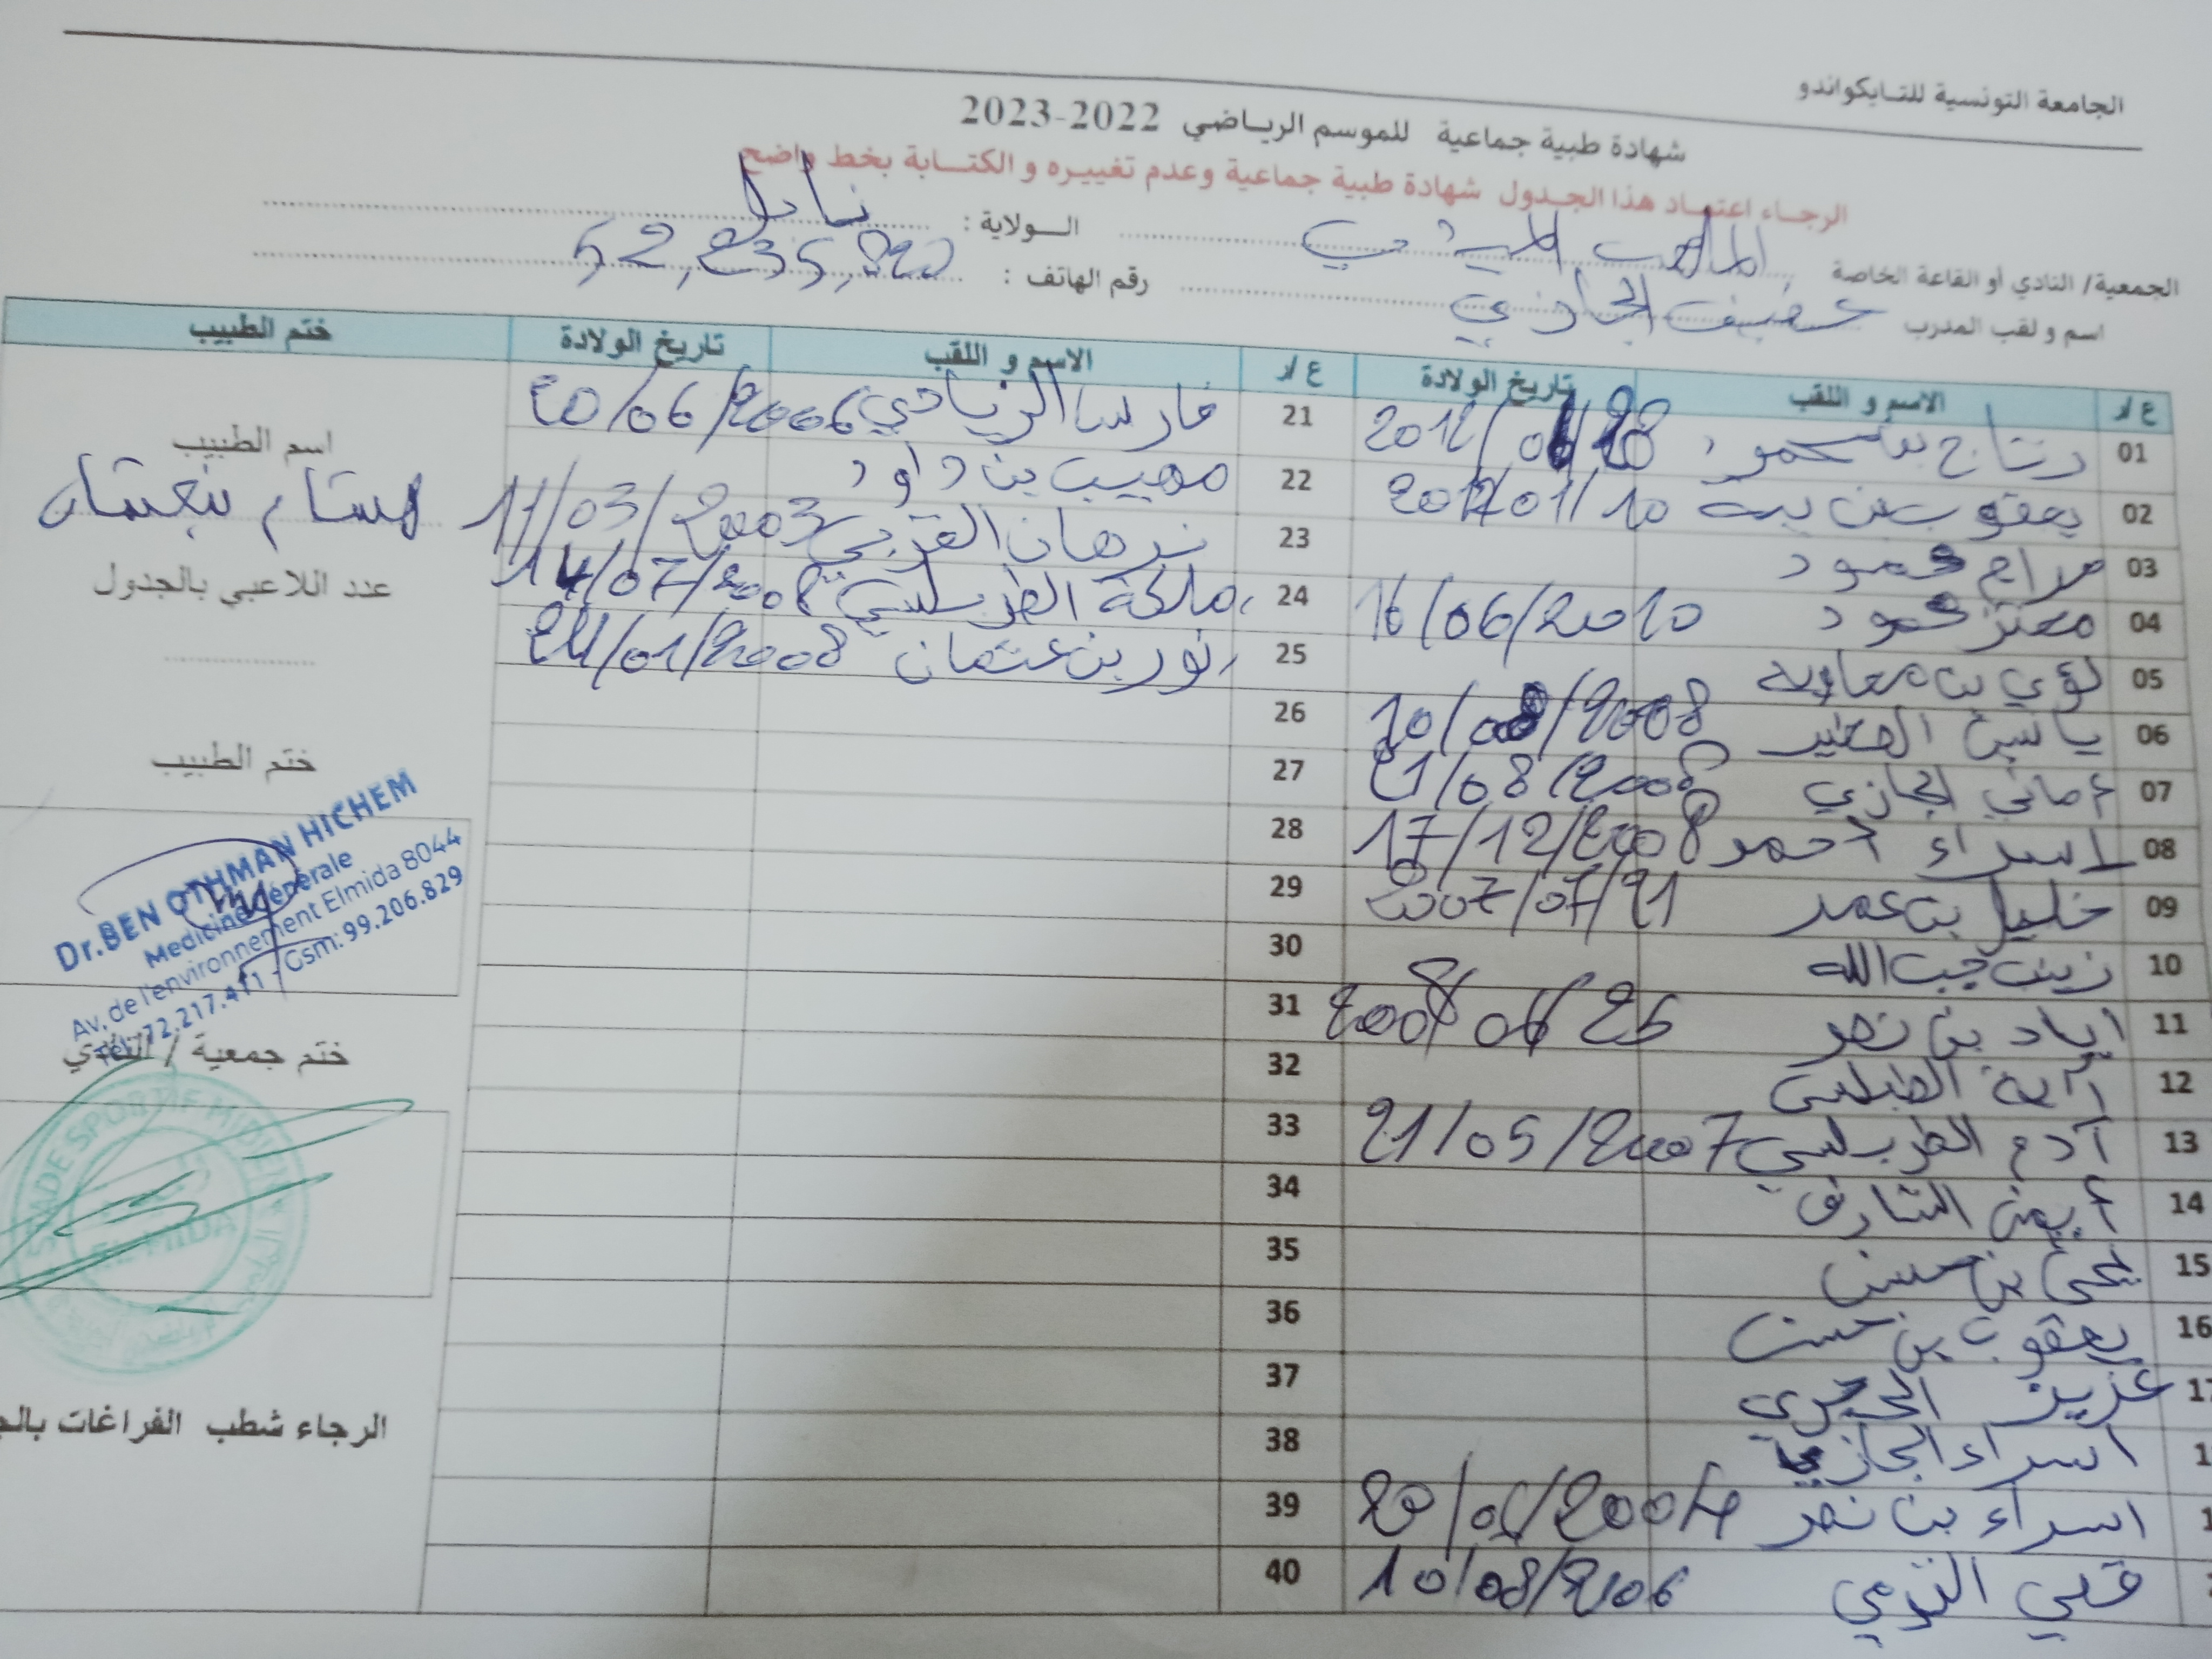 الجامعة التونسية للتايكواندو
شهادة طبية جماعية للموسم الرياضي 2022-2023
الرجاء اعتماد هذا الجدول شهادة طبية جماعية وعدم تغييره و الكتابة بخط واضح
الجمعية/ النادي أو القاعة الخاصة الملعب الميدي الولاية : نابل
اسم و لقب المدرب الحجازي رقم الهاتف :
ع /ر الاسم و اللقب تاريخ الولادة ع /ر الاسم و اللقب تاريخ الولادة ختم الطبيب
01 21 فارس الزيادي 20/06/2006
02 يعقوب بن 2012/01/10 22 مهيب بن داود
03 محمود 23 القزبي 11/03/2003
04 معتز محمود 16/06/2010 24 ملكة الطرابلسي 14/07/2008
05 لؤي بن معاوية 25 نور بن عثمان 24/01/2008
06 ياسين 10/08/2008 26
07 أماني الحجازي 21/08/2008 27
08 اسراء أحمد 17/12/2008 28
09 خليل بن عمر 2007/07/21 29
10 زينب جب الله 30
11 اياد بن نصر 31
12 آية 32
13 آدم الطرابلسي 21/05/2007 33
14 أيمن الشارف 34
15 يحي بن حسن 35
16 يعقوب بن حسن 36
عزيز 37
اسراء الحجازي 38
اسراء بن نصر 39
قصي التومي 10/08/2006 40
اسم الطبيب
هشام بنعثمان
عدد اللاعبي بالجدول
ختم الطبيب
Dr.BEN OTHMAN HICHEM
Medicine Générale
Av, de l'environnement Elmida 8044
Tél: 72.217.411 - Gsm: 99.206.829
ختم جمعية / النادي
STADE SPORTIF MIDIEN
EL MIDA
الرجاء شطب الفراغات